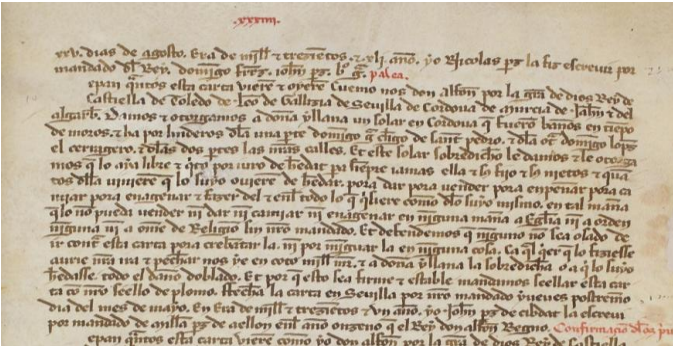 .xxxiiii.
xxv. dias de agosto. Era de mill & trezientos. & .xli. año. yo Nicolas pez la fiz escreuir por
mandado del Rey. domingo johan pez. palea.
epan quantos esta carta vieren & oyeren Cuemo nos don alfonso por la gracia de dios Rey de
Castiella de Toledo de Leon de Gallizia de Seuilla de Cordoua de Murcia de Jahen & del
algarbe. Damos & otorgamos a doña yllana un solar en Cordoua que fueron baños en tiempo
de moros. & ha por linderos dela una parte domingo clerigo de sant pedro. & dela otra domingo lopez
el ceruigero. & delas dos partes las calles. Et este solar sobredicho le damos & le otorga
mos que lo aya libre & quito por iuro de heredat pora siempre iamas ella & sus fijos & sus nietos & quan
tos della vinieren que lo suyo ouieren de heredar. pora dar pora vender pora enpenar pora ca
miar pora enagenar & fazer del & enel todo lo que quisiere como delo suyo mismo. en tal manera
que lo non pueda vender ni dar ni camiar ni enagenar en ninguna manera a Eglesia ni a orden
ninguna ni a ome de Religion sin nuestro mandado. Et defendemos que ninguno non sea osado de
ir contra esta carta pora crebantar la. ni por minguar la en ninguna cosa. Ca qual quier que lo fiziesse
aurie nuestra ira & pechar nos ye en coto mill & a doña yllana la sobredicha o a qui lo suyo
heredasse. todo el daño doblado. Et por que esto sea firme & estable mandamos seellar esta car
ta con nuestro seello de plomo. ffecha la carta en Seuilla por nuestro mandado yueues postremo
dia del mes de mayo. en Era de mill & trezientos & un año. yo johan pez de cibdat la escreui
por mandado de millan pez de aellon enel año onzeno que el Rey don alfonso Regno. Confirmacion
epan quantos esta carta vieren como yo don alfonso por la gracia de dios Rey de Castiella